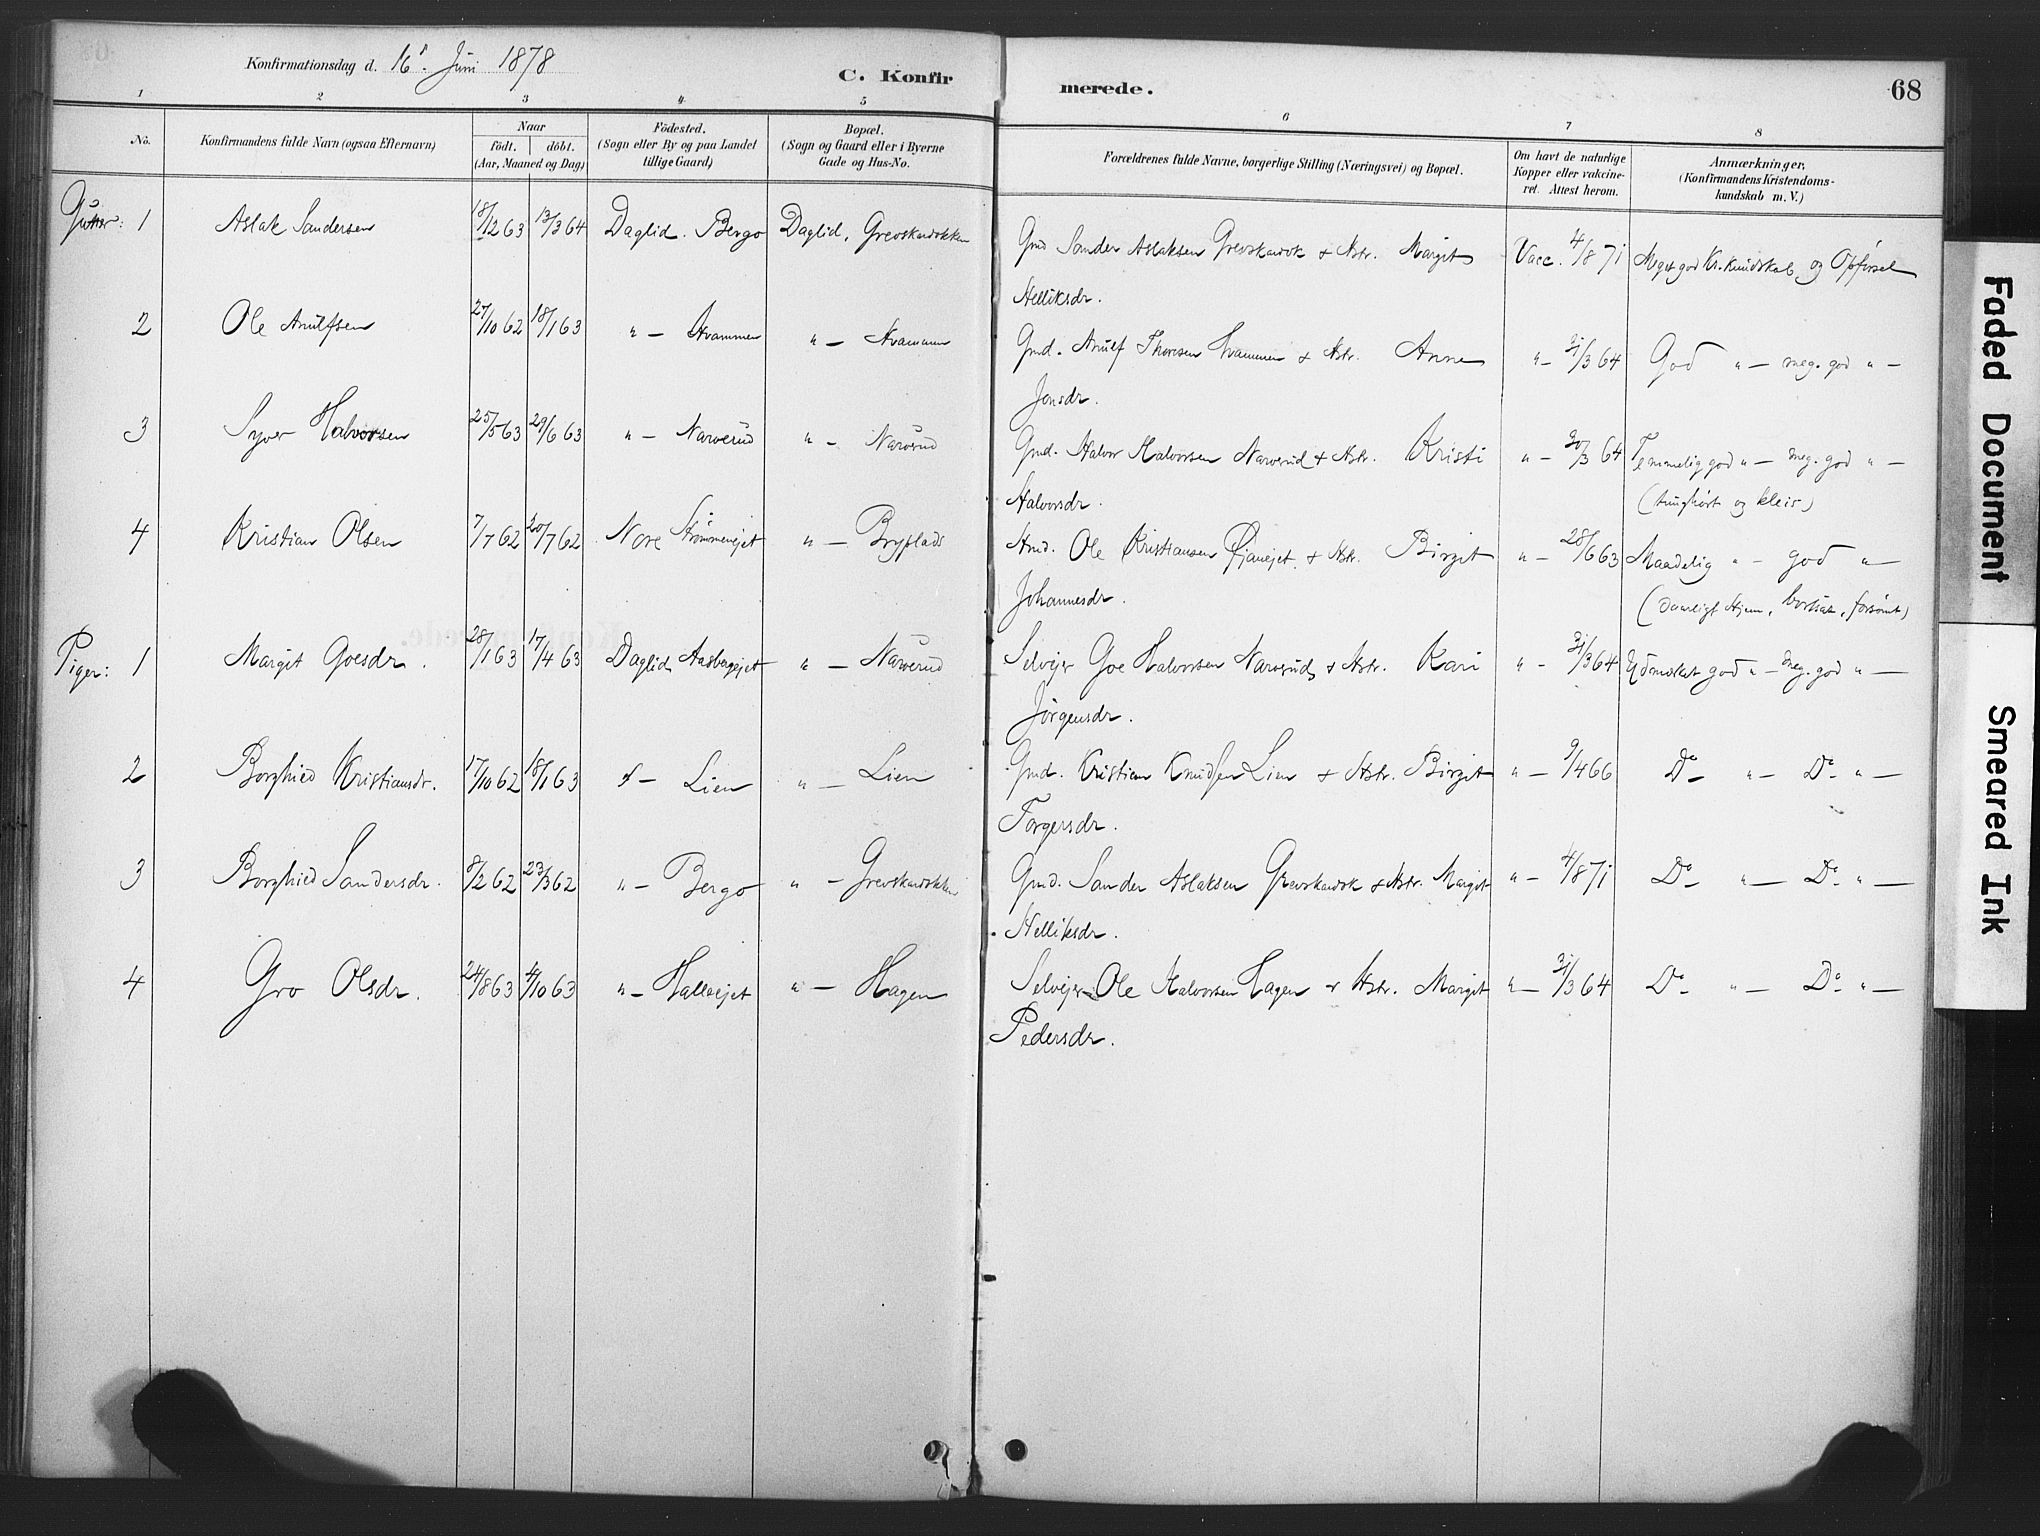 Konfirmationsdag d. 16. Juni 1878
C. Konfirmerede.
68
1 2 3 4 5 6 7 8
No. Konfirmandens fulde Navn (ogsaa Efternavn) Naar födt. döbt. (Aar, Maaned og Dag) Födested. (Sogn eller By og paa Landet tillige Gaard) Bopæl. (Sogn og Gaard eller i Byerne Gade og Hus-No. Forældrenes fulde Navne, borgerlige Stilling (Næringsvei) og Bopæl. Om havt de naturlige Kopper eller vakcineret. Attest herom. Anmærkninger, (Konfirmandens Kristendomskundskab m. V.)
Gutter: 1 Aslak Sandersen 18/12 63 13/3 64 Daglid. Bergo Daglid, Grevskardokken Gmd Sander Aslaksen Grevskardok & Hstr. Margit Helliksdr. Vacc. 4/8 71 Meget god Kr. kundskab og Opførsel
2 Ole Anulfsen 27/10 62 18/1 63 " — Hvammen " — Hvammen Gmd. Anulf Thoresen Hvammen & Hstr. Anne Jonsdr. " — 31/3 64 God " — meg. god " —
3 Syver Halvorsen 25/5 63 29/6 63 " — Narverud " — Narverud Gmd. Halvor Halvorsen Narverud & Hstr. Kristi Halvorsdr. " — 30/3 64 Temmelig god " — meg. god " —
(tunghørt og kleis)
4 Kristian Olsen 7/7 62 20/7 62 Nore Strømmenejet " — Bryplads Hmd. Ole Kristiansen Øjanejet & Hstr. Birgit Johannesdr. " — 28/6 63 Maadelig " — god " —
(daarligt Hjem, bortsat, forsømt)
Piger: 1 Margit Goesdr. 28/1 63 17/4 63 Daglid Aasbergejet " — Narverud Selvejer Goe Halvorsen Narverud & Hstr. Kari Jörgensdr. " — 31/3 64 Udmærket god " — meg. god " —
2 Borghied Kristiansdr. 17/10 62 18/1 63 " — Lien " — Lien Gmd. Kristian Knudsen Lien & Hstr. Birgit Torgersdr. " — 9/4 66 Do — " — Do — " —
3 Borghied Sandersdr. 8/2 62 23/3 62 " — Bergo " — Grevskardokken Gmd. Sander Aslaksen Grevskardok & Hstr. Margit Helliksdr. " — 4/8 71 Do — " — Do — " —
4 Gro Olsdr. 24/8 63 4/10 63 " — Hallvejet " — Hagen Selvejer Ole Halvorsen Hagen & Hstr. Margit Pedersdr. " — 31/3 64 Do — " — Do — " —
Faded Document
Smeared Ink